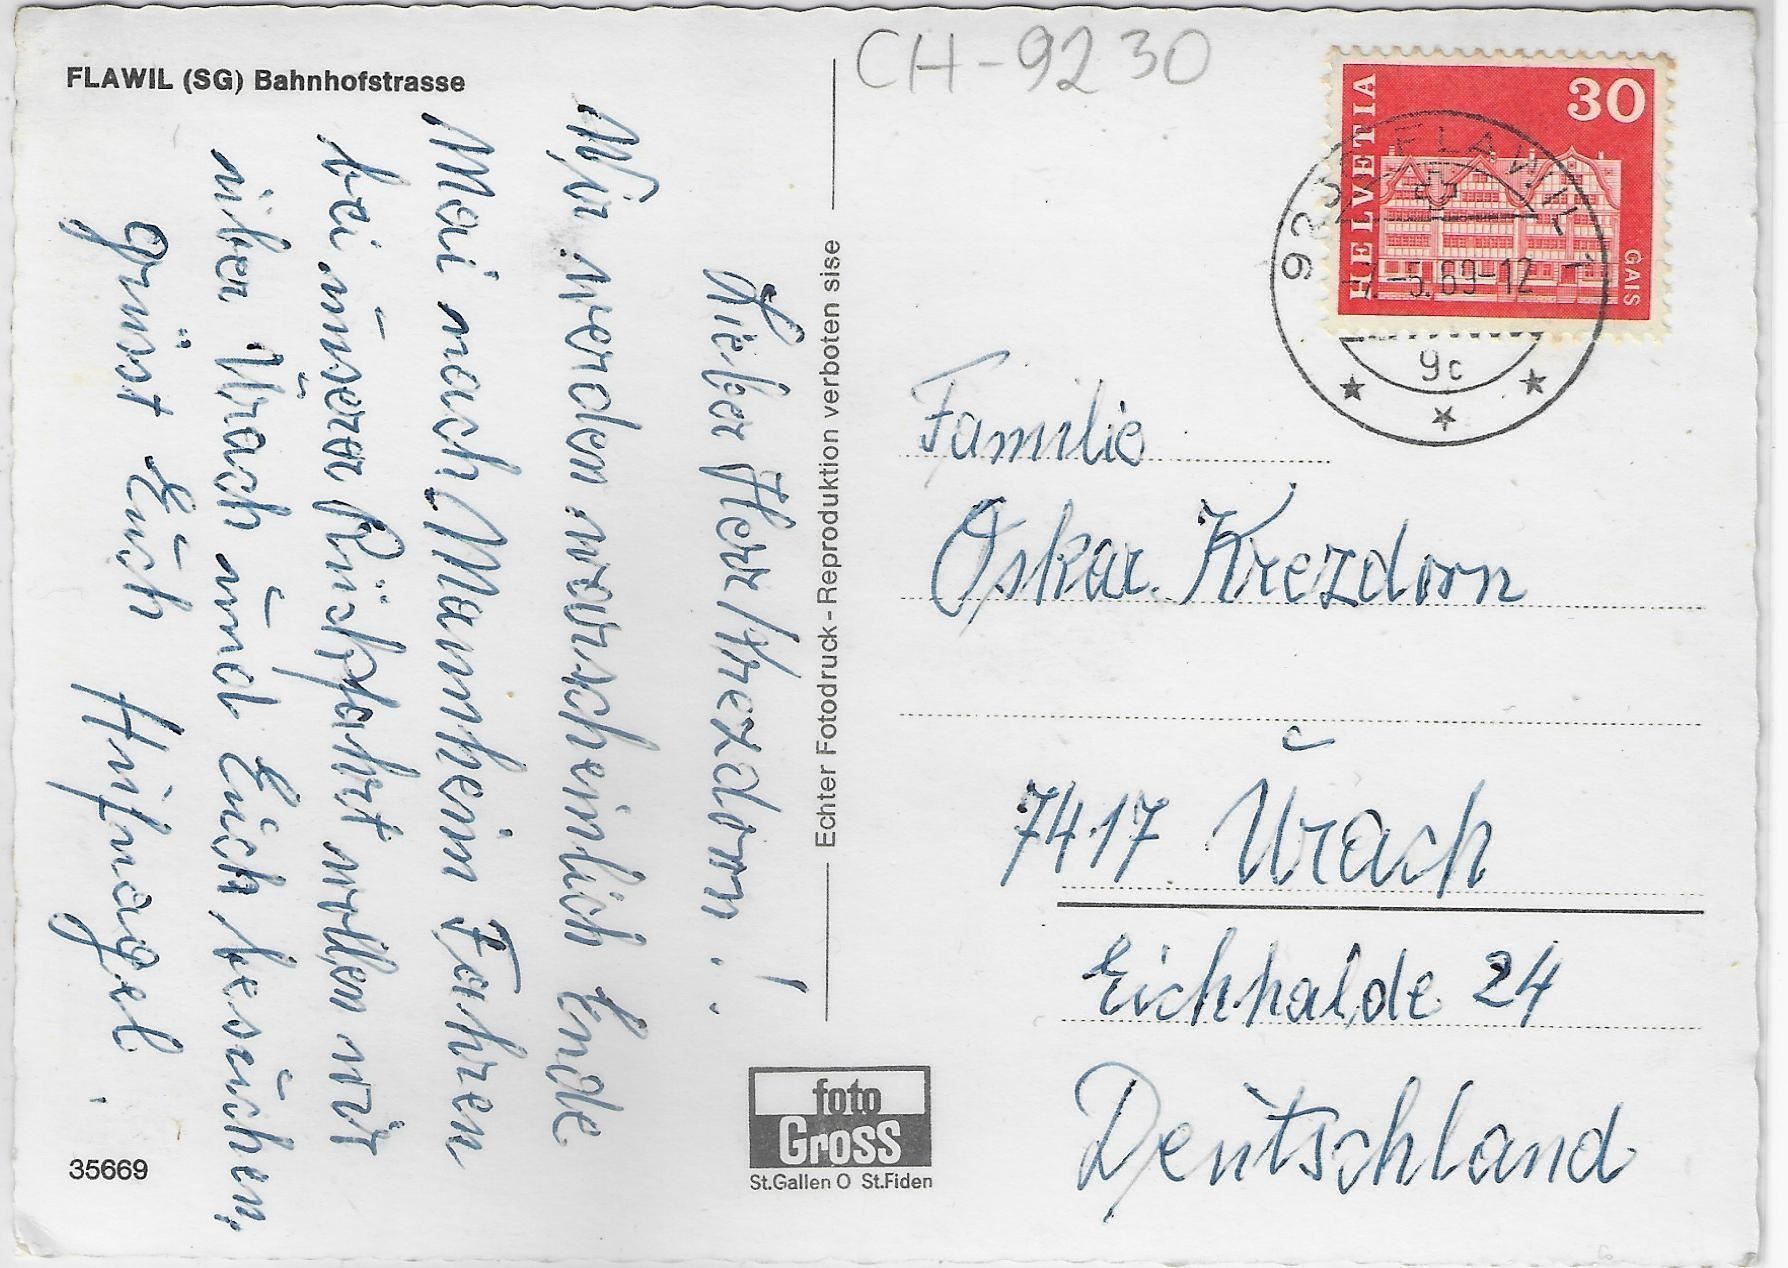 FLAWIL (SG) Bahnhofstrasse
CH-9230
HELVETIA
30
GAIS
9230 FLAWIL 1
-7.-5.69-12
9c
Lieber Herr Krezdorn!
Wir werden warscheinlich Ende
Mai nach Mannheim Fahren
bei unserer Rückfahrt wollen wir
über Urach und Euch besuchen,
grüsst Euch Hufnagel.
Echter Fotodruck-Reproduktion verboten sise
Familie
Oskar Krezdorn
7417 Urach
Eichhalde 24
Deutschland
foto
Gross
St.Gallen O St.Fiden
35669